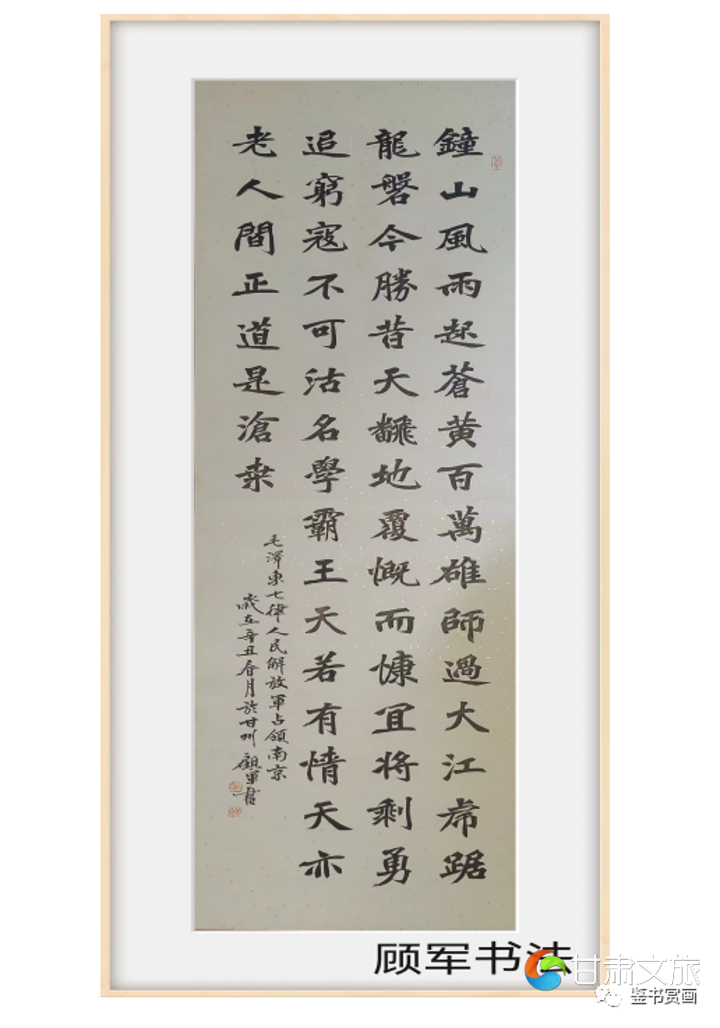 鐘山風雨起蒼黄百萬雄師過大江虎踞
龍磐今勝昔天飜地覆慨而慷宜将剩勇
追窮寇不可沽名學霸王天若有情天亦
老人間正道是滄桒
毛澤東七律人民解放軍占領南京
歲在辛丑春月於甘州 顧軍書
顾军书法
甘肃文旅
鉴书赏画